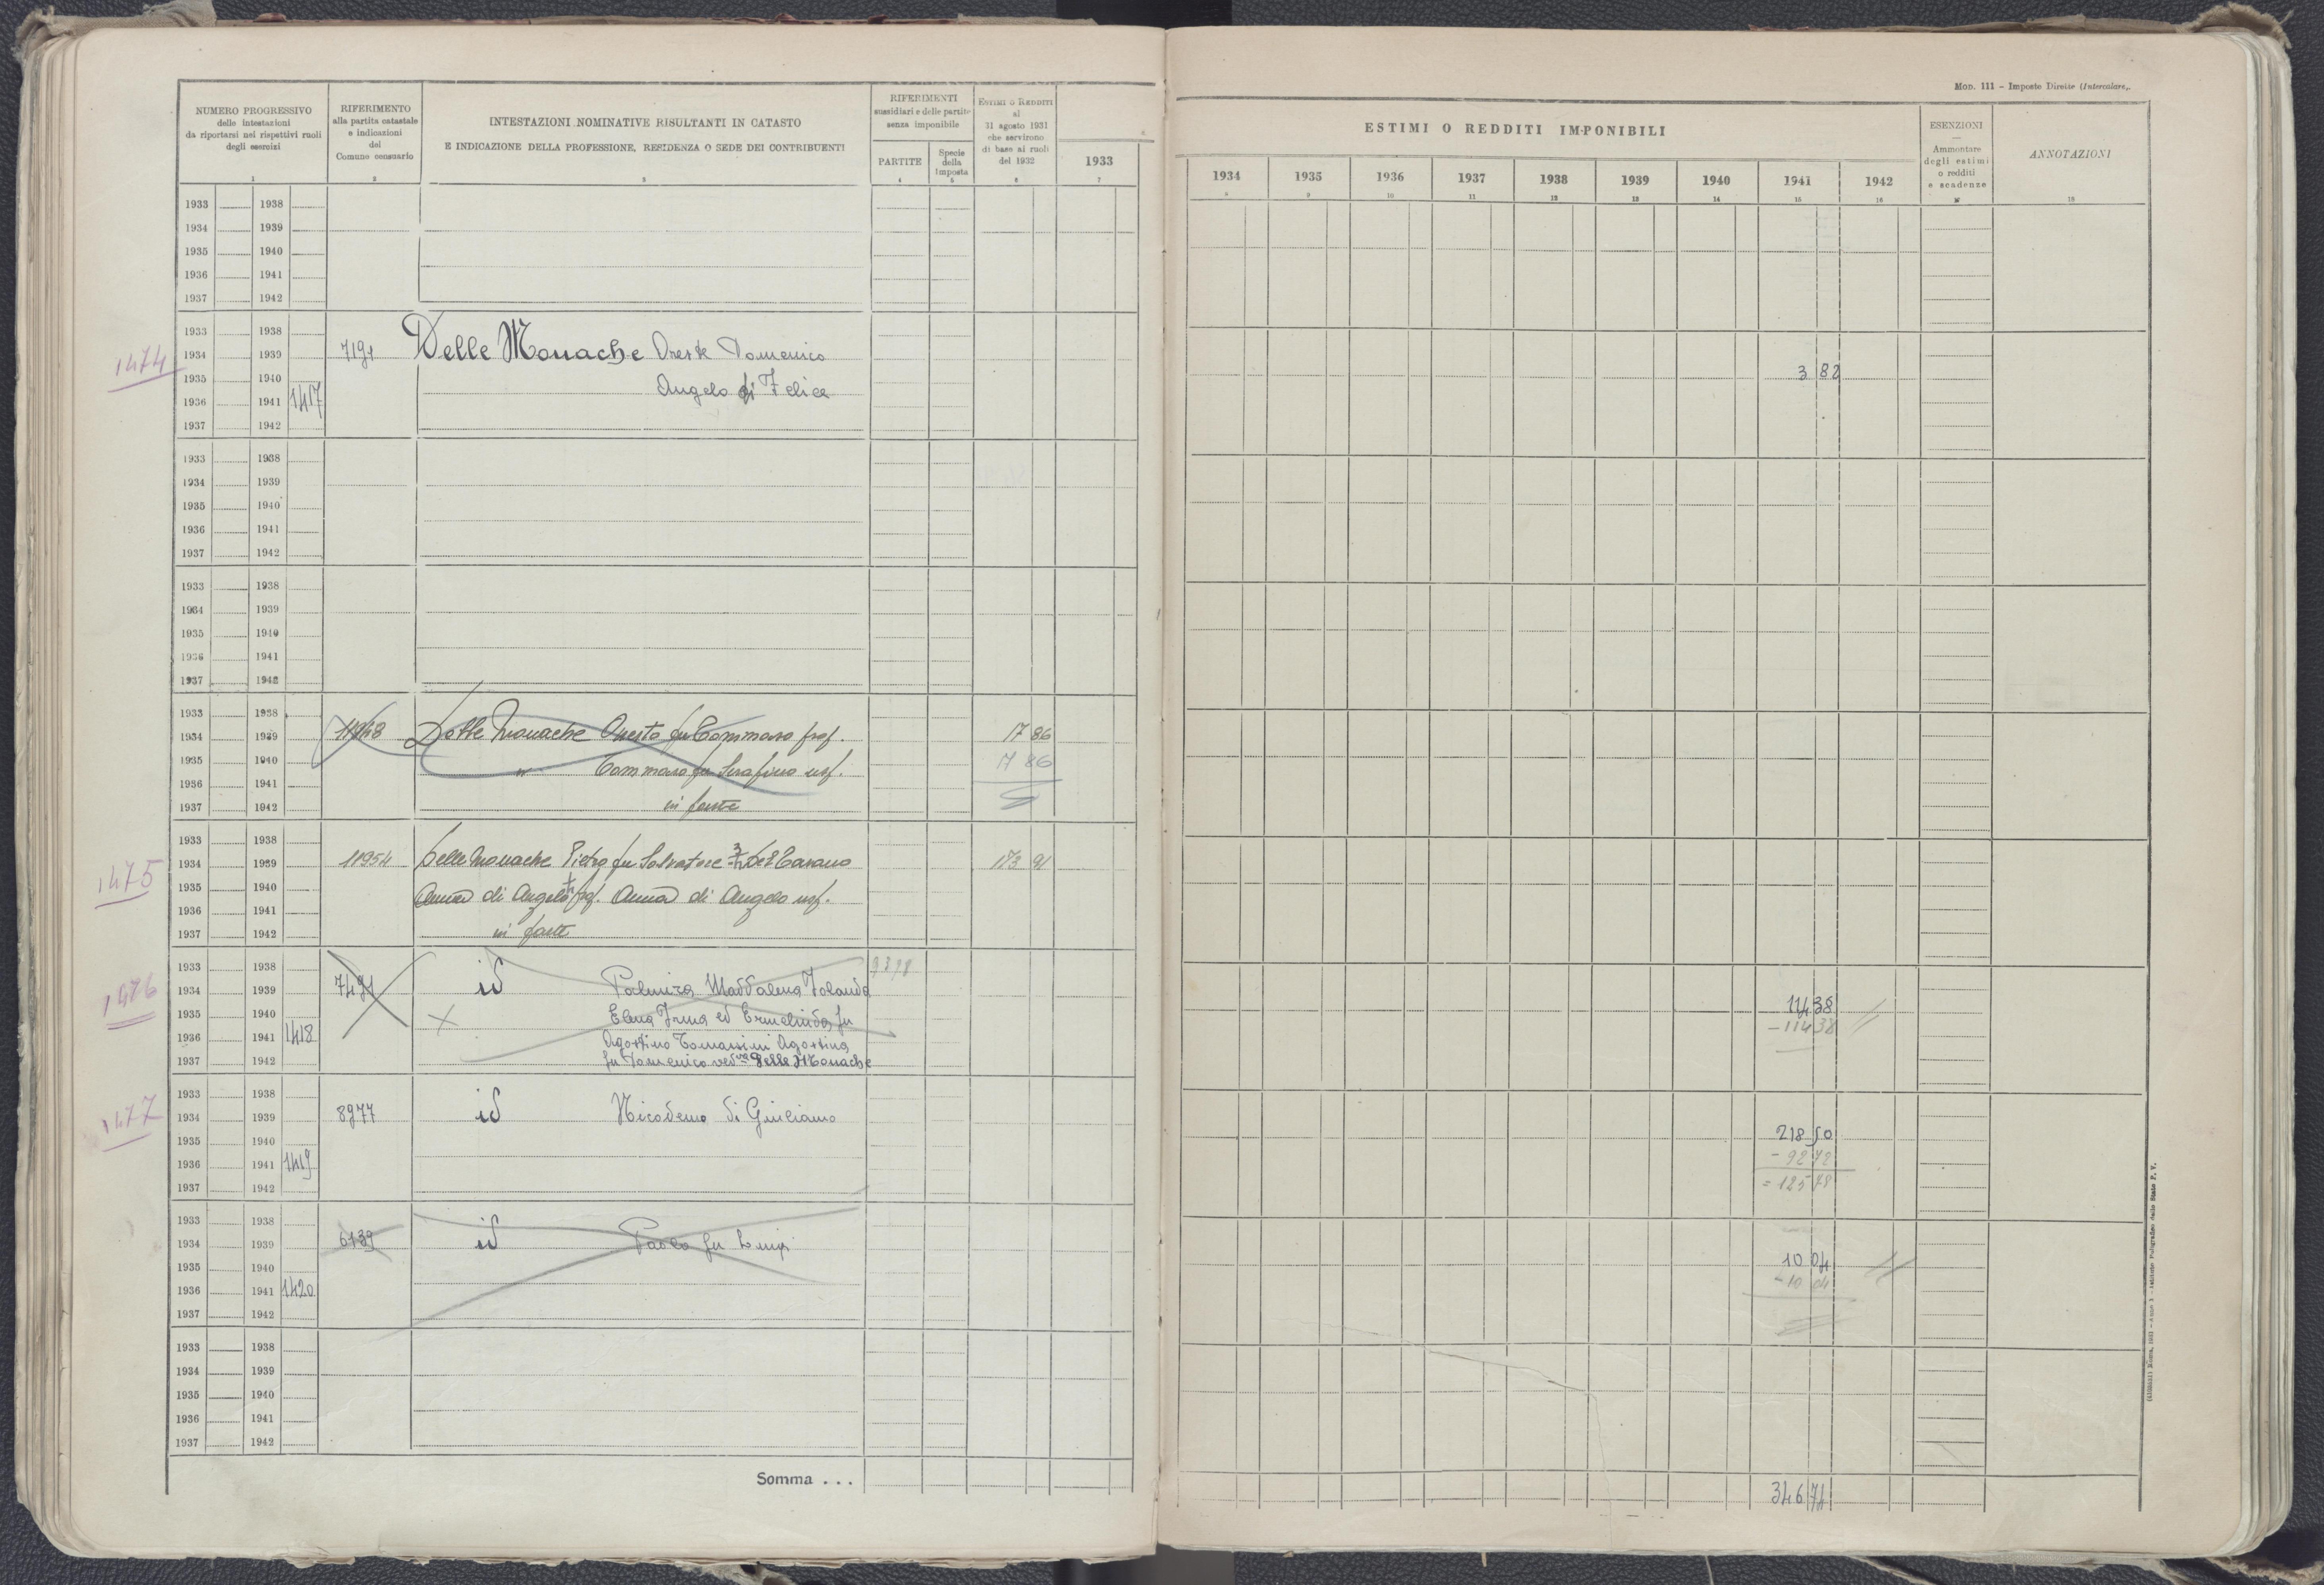 Mod. 111 - Imposte Dirette (Intercalare).
NUMERO PROGRESSIVO
delle intestazioni
da riportarsi nei rispettivi ruoli
degli esercizi
1
RIFERIMENTO
alla partita catastale
e indicazioni
del
Comune censuario
2
INTESTAZIONI NOMINATIVE RISULTANTI IN CATASTO
E INDICAZIONE DELLA PROFESSIONE, RESIDENZA O SEDE DEI CONTRIBUENTI
3
RIFERIMENTI
sussidiari e delle partite
senza imponibile
PARTITE
4
Specie
della
Imposta
5
ESTIMI O REDDITI
al
31 agosto 1931
che servirono
di base ai ruoli
del 1932
6
1933
7
ESTIMI O REDDITI IMPONIBILI
1934 1935 1936 1937 1938 1939 1940 1941 1942
8 9 10 11 12 13 14 15 16
ESENZIONI
Ammontare
degli estimi
o redditi
e scadenze
17
ANNOTAZIONI
18
1933 1938
1934 1939
1935 1940
1936 1941
1937 1942
1933 1938
1474 1934 1939 7191 Delle Monache Oreste Domenico
1935 1940 3 82
1936 1941 1417 Angelo di Felice
1937 1942
1933 1938
1934 1939
1935 1940
1936 1941
1937 1942
1933 1938
1934 1939
1935 1940
1936 1941
1937 1942
1933 1938
1934 1939 11948 Delle Monache Oreste fu Tommaso prop. 17 86
1935 1940 " Tommaso fu Serafino usf. 17 86
1936 1941
1937 1942 in parte
1933 1938
1475 1934 1939 11954 Delle Monache Pietro fu Salvatore Del Cavano 173 91
1935 1940
1936 1941 Anna di Angelo prop. Anna di Angelo usf.
1937 1942 in parte
1933 1938 9398
1476 1934 1939 7491 id Palmira Maddalena Jolanda
1935 1940 Elena Irma ed Ermelinda fu 114 38
1936 1941 1418 Agostino Tomassini Agostina - 114 38
1937 1942 fu Domenico ved va Delle Monache
1933 1938
1477 1934 1939 8977 id Nicodemo di Giuliano
1935 1940 218 50
1936 1941 1419 - 92 72
1937 1942 = 125 78
1933 1938
1934 1939 6139 id Paolo fu Luigi
1935 1940 10 04
1936 1941 1420 - 10 04
1937 1942
1933 1938
1934 1939
1935 1940
1936 1941
1937 1942
Somma . . . 346 74